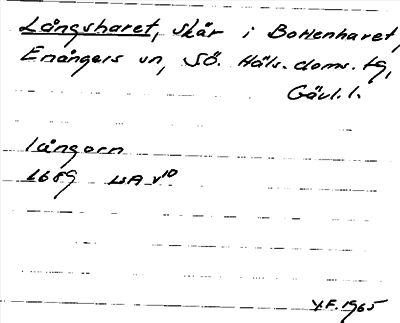 Långsharet, skär i Bottenhavet,
Enångers sn, SÖ. Häls. doms. tg,
Gävl. l.
långorn
1689 LSA v10
Y.F. 1965